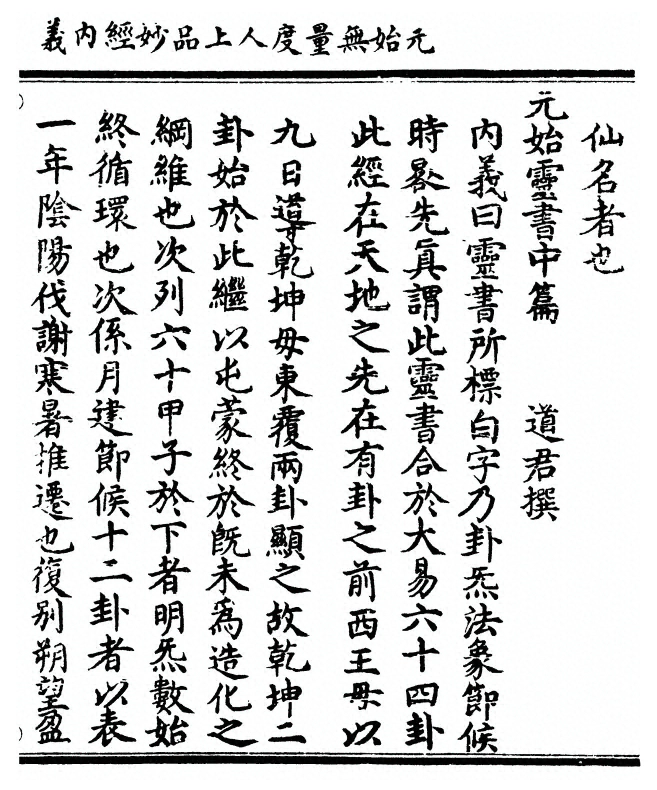 元始無量度人上品妙經內義
仙名者也
元始靈書中篇　道君撰
內義曰靈書所標白字乃卦炁法象節候
時晷先眞謂此靈書合於大易六十四卦
此經在天地之先在有卦之前西王母以
九日導乾坤毋東覆兩卦顯之故乾坤二
卦始於此繼以屯蒙終於旣未爲造化之
綱維也次列六十甲子於下者明炁數始
終循環也次係月建節候十二卦者以表
一年陰陽伐謝寒暑推遷也復別朔望盈